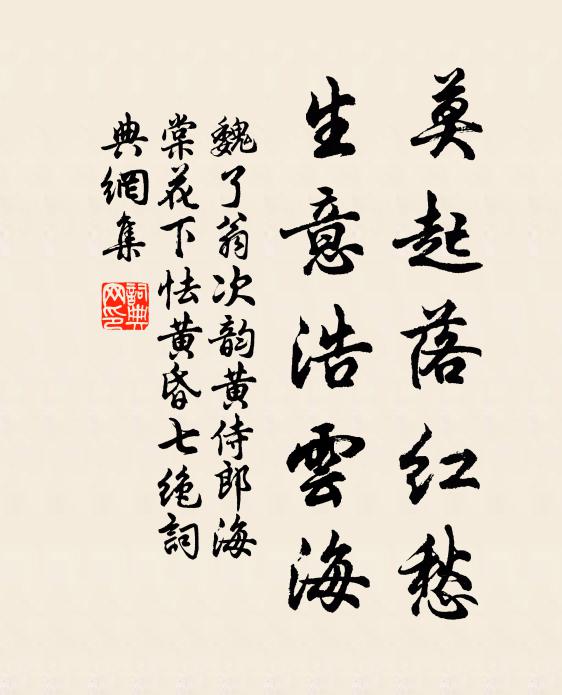 莫起落红愁
生意浩雲海
魏了翁次韵黄侍郎海
棠花下怯黄昏七绝詞
典網集
詞典网印